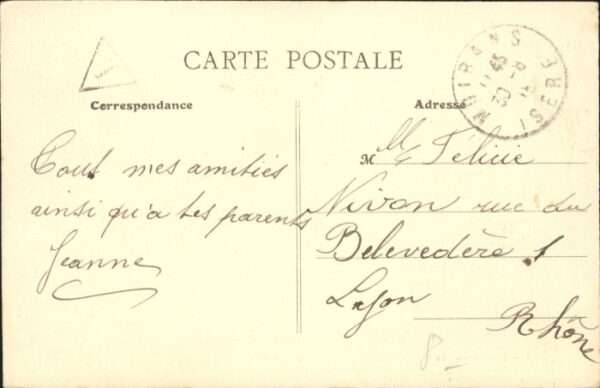 CARTE POSTALE
Correspondance
Adresse
MOIRANS
ISERE
Tout mes amitiés
ainsi qu'a tes parents
Jeanne
M Mlle Félicie
Nivon rue du
Belevedère 1
Lyon
Rhône